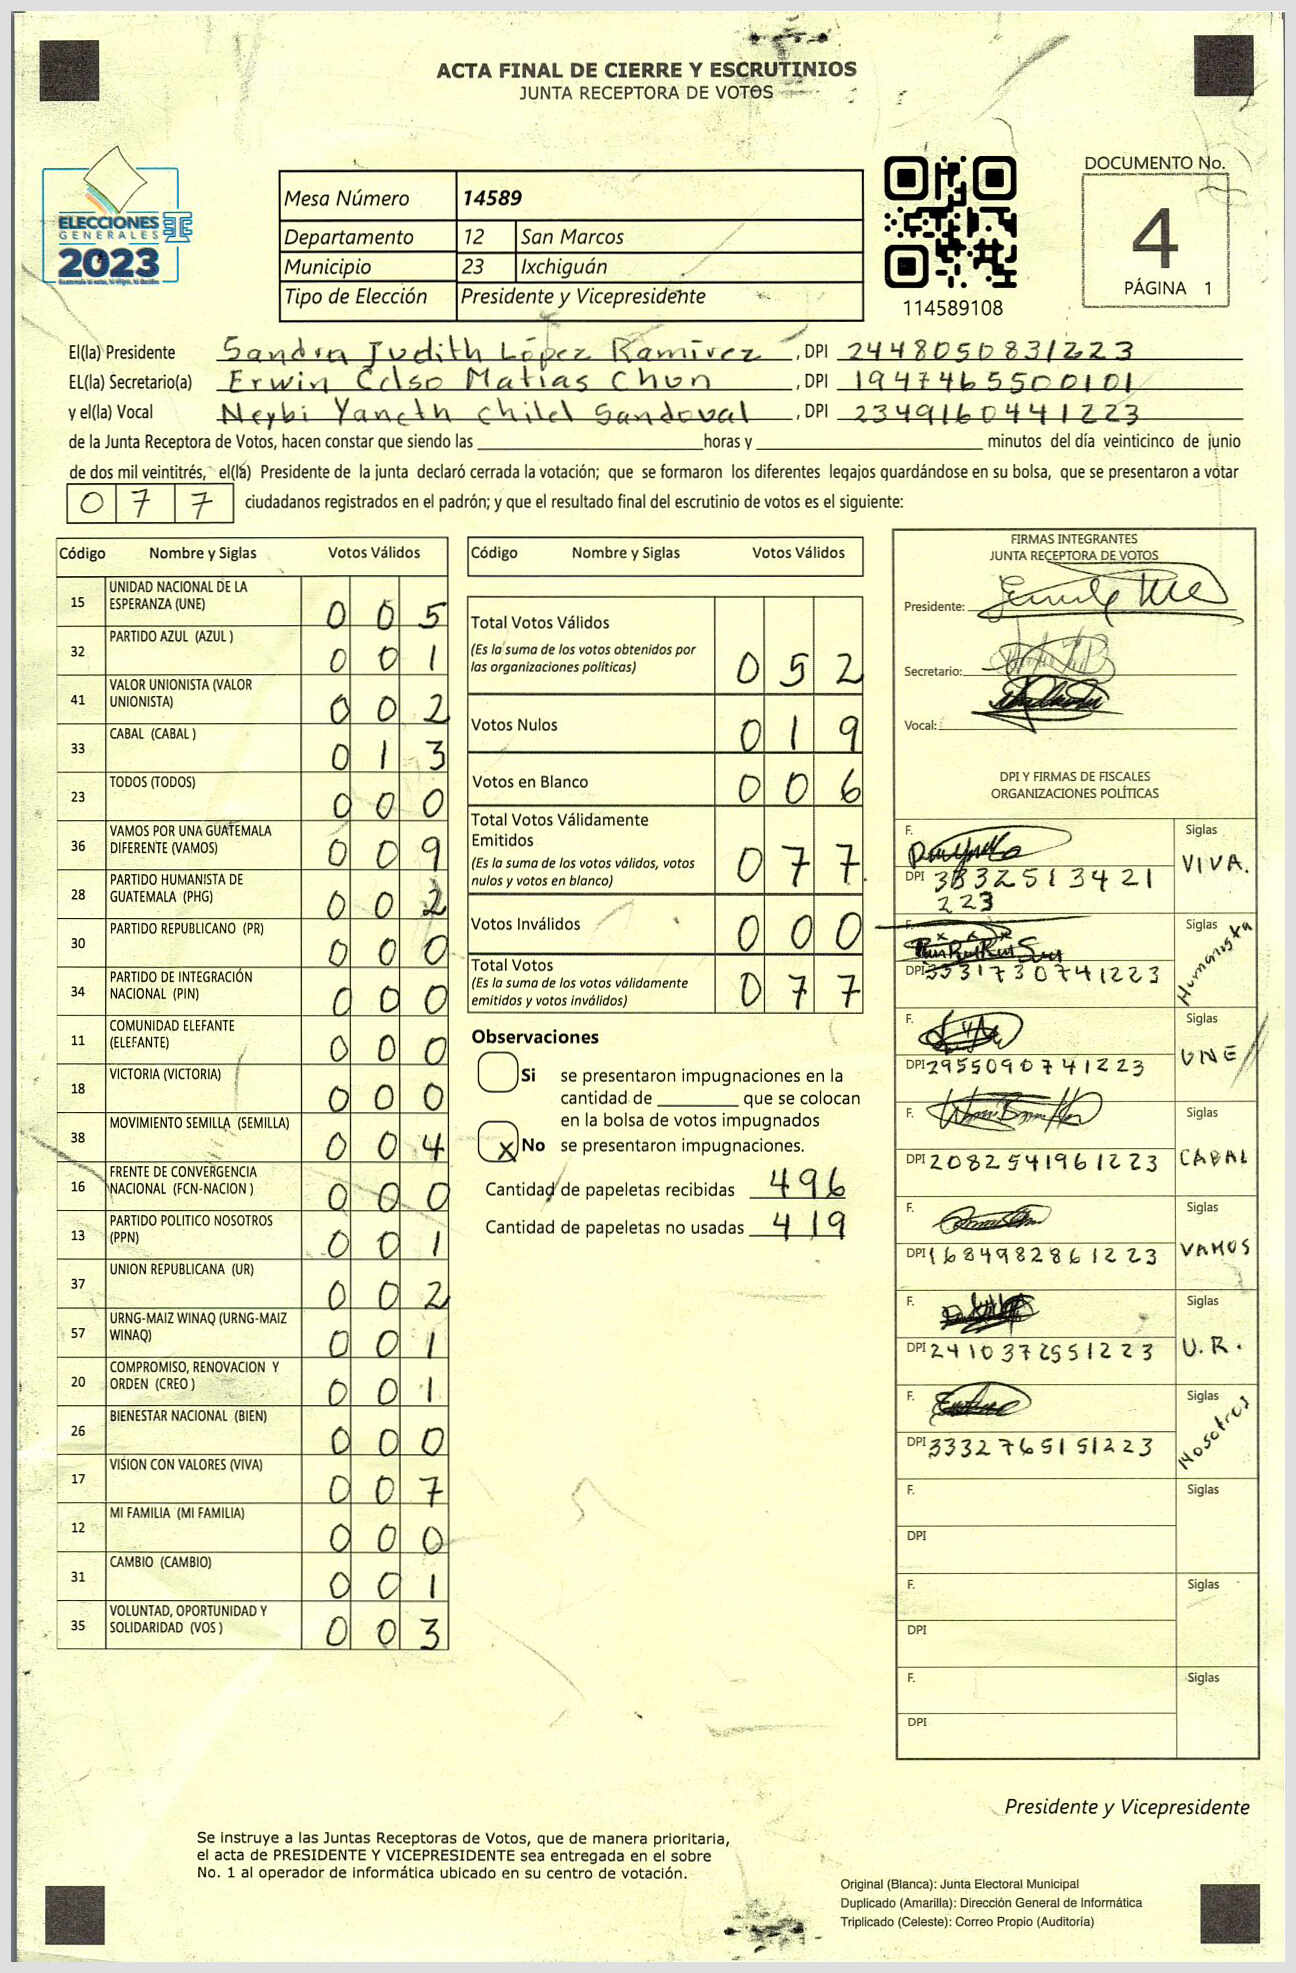 ACTA FINAL DE CIERRE Y ESCRUTINIOS
JUNTA RECEPTORA DE VOTOS
ELECCIONES
GENERALES
2023
Mesa Número 14589
Departamento 12 San Marcos
Municipio 23 Ixchiguán
Tipo de Elección Presidente y Vicepresidente
114589108
DOCUMENTO No.
4
PÁGINA 1
El(la) Presidente Sandra Judith López Ramírez, DPI 2448050831223
EL(la) Secretario(a) Erwin Celso Matias Chun, DPI 1947465500101
y el(la) Vocal Neybi Yaneth Chilel Sandoval, DPI 2349160441223
de la Junta Receptora de Votos, hacen constar que siendo las ____ horas y ____ minutos del día veinticinco de junio
de dos mil veintitrés, el(la) Presidente de la junta declaró cerrada la votación; que se formaron los diferentes legajos guardándose en su bolsa, que se presentaron a votar
077 ciudadanos registrados en el padrón; y que el resultado final del escrutinio de votos es el siguiente:
Código Nombre y Siglas Votos Válidos
15 UNIDAD NACIONAL DE LA ESPERANZA (UNE) 005
32 PARTIDO AZUL (AZUL ) 001
41 VALOR UNIONISTA (VALOR UNIONISTA) 002
33 CABAL (CABAL ) 013
23 TODOS (TODOS) 000
36 VAMOS POR UNA GUATEMALA DIFERENTE (VAMOS) 009
28 PARTIDO HUMANISTA DE GUATEMALA (PHG) 002
30 PARTIDO REPUBLICANO (PR) 000
34 PARTIDO DE INTEGRACIÓN NACIONAL (PIN) 000
11 COMUNIDAD ELEFANTE (ELEFANTE) 000
18 VICTORIA (VICTORIA) 000
38 MOVIMIENTO SEMILLA (SEMILLA) 004
16 FRENTE DE CONVERGENCIA NACIONAL (FCN-NACION ) 000
13 PARTIDO POLITICO NOSOTROS (PPN) 001
37 UNION REPUBLICANA (UR) 002
57 URNG-MAIZ WINAQ (URNG-MAIZ WINAQ) 001
20 COMPROMISO, RENOVACION Y ORDEN (CREO ) 001
26 BIENESTAR NACIONAL (BIEN) 000
17 VISION CON VALORES (VIVA) 007
12 MI FAMILIA (MI FAMILIA) 000
31 CAMBIO (CAMBIO) 001
35 VOLUNTAD, OPORTUNIDAD Y SOLIDARIDAD (VOS ) 003
Código Nombre y Siglas Votos Válidos
Total Votos Válidos
(Es la suma de los votos obtenidos por
las organizaciones políticas) 052
Votos Nulos 019
Votos en Blanco 006
Total Votos Válidamente
Emitidos
(Es la suma de los votos válidos, votos
nulos y votos en blanco) 077
Votos Inválidos 000
Total Votos
(Es la suma de los votos válidamente
emitidos y votos inválidos) 077
Observaciones
Si se presentaron impugnaciones en la
cantidad de ____ que se colocan
en la bolsa de votos impugnados
X No se presentaron impugnaciones.
Cantidad de papeletas recibidas 496
Cantidad de papeletas no usadas 419
FIRMAS INTEGRANTES
JUNTA RECEPTORA DE VOTOS
Presidente:
Secretario:
Vocal:
DPI Y FIRMAS DE FISCALES
ORGANIZACIONES POLÍTICAS
F. Siglas VIVA.
DPI 3332513421
223
F. Siglas Humanista
DPI 3331730741223
F. Siglas UNE
DPI 2955090741223
F. Siglas CABAL
DPI 2082541961223
F. Siglas VAMOS
DPI 1684982861223
F. Siglas U.R.
DPI 2410372551223
F. Siglas Nosotros
DPI 3332765151223
F. Siglas
DPI
F. Siglas
DPI
F. Siglas
DPI
Presidente y Vicepresidente
Se instruye a las Juntas Receptoras de Votos, que de manera prioritaria,
el acta de PRESIDENTE Y VICEPRESIDENTE sea entregada en el sobre
No. 1 al operador de informática ubicado en su centro de votación.
Original (Blanca): Junta Electoral Municipal
Duplicado (Amarilla): Dirección General de Informática
Triplicado (Celeste): Correo Propio (Auditoría)